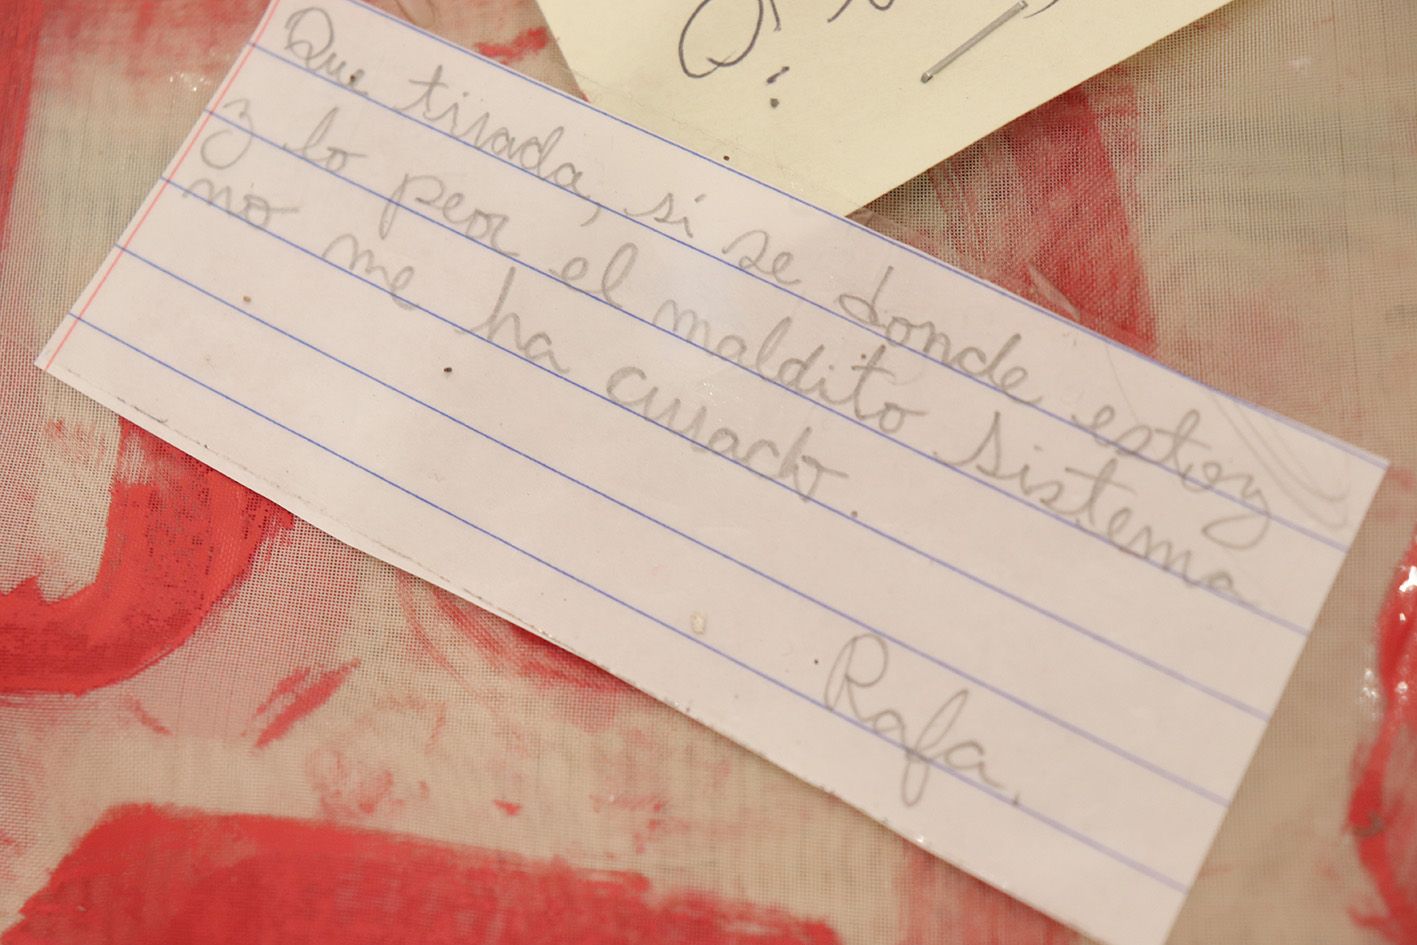 Que tirada, si se donde estoy
y lo peor el maldito sistema
no me ha curado
Rafa.